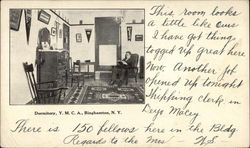 This room looks
a little like ours
I have got things
togged up great here
Now. Another job
opened up tonight
Shipping clerk in
Macey
Dormitory, Y. M. C. A., Binghamton, N. Y.
There is 150 fellows here in the Bldg.
Regards to the